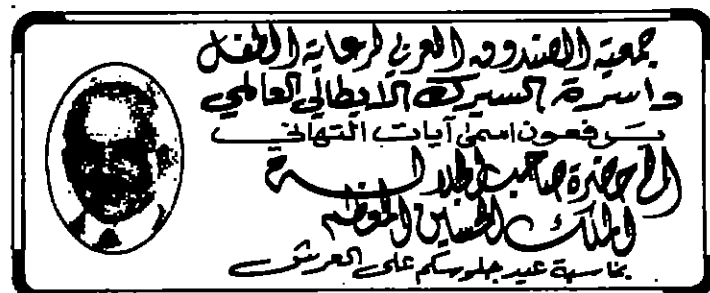 جمعية الصندوق العربي لرعاية الطفل
واسرة السيرك الايطالي العالمي
يرفعون اسمى آيات التهاني
الى حضرة صاحب الجلالة
الملك الحسين المعظم
بمناسبة عيد جلوسكم على العرش